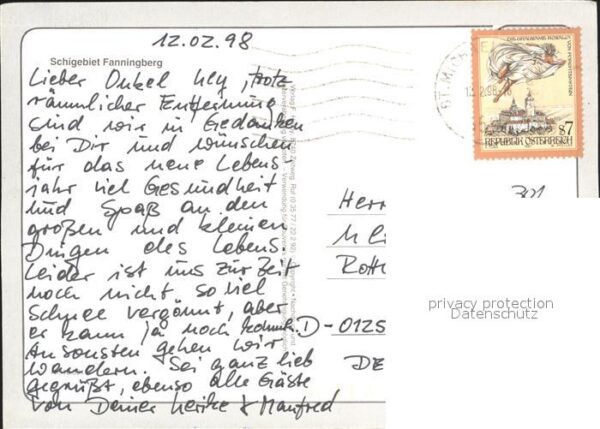 12.02.98
Schigebiet Fanningberg
Lieber Onkel Uly, trotz
räumlicher Entfernung
sind wir in Gedanken
bei Dir und wünschen
für das neue Lebens-
jahr viel Gesundheit
und Spaß an den
großen und kleinen
Dingen des Lebens.
Leider ist uns zur Zeit
noch nicht so viel
Schnee vergönnt, aber
er kann ja noch kommen.
Ansonsten gehen wir
wandern. Sei ganz lieb
gegrüßt, ebenso alle Gäste
von Deiner Heike & Manfred
S 7
REPUBLIK ÖSTERREICH
301
Herr
Rott
D-0125
DE
privacy protection
Datenschutz